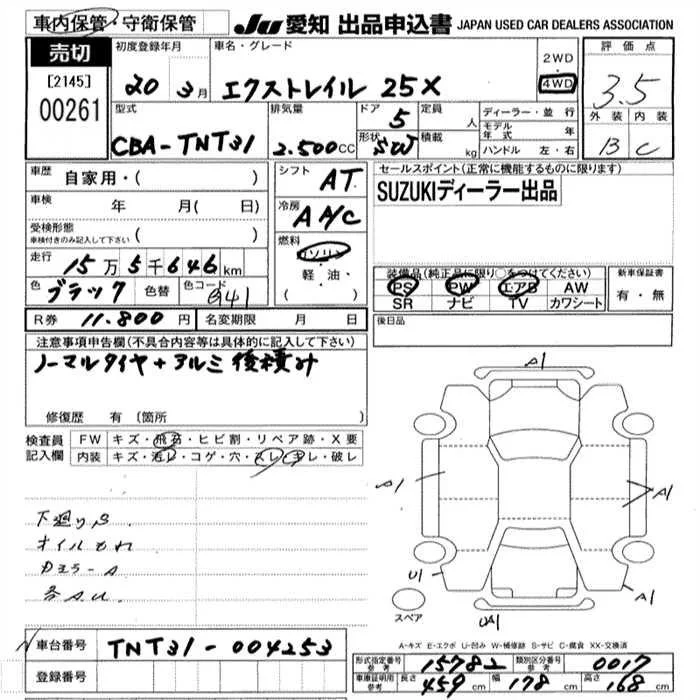 車内保管・守衛保管
JU 愛知 出品申込書 JAPAN USED CAR DEALERS ASSOCIATION
売切
[2145]
00261
初度登録年月
20 3月
車名・グレード
エクストレイル 25X
2WD
4WD
評価点
3.5
外装 内装
B C
型式
CBA-TNT31
排気量
2.500cc
ドア
5
形状
SW
定員
人
積載
kg
ディーラー・並行
モデル年式 年
ハンドル 左・右
車歴
自家用・( )
車検
年 月( 日)
受検形態
車検付きのみ記入して下さい ( )
走行
15万5千646km
色
ブラック 色替 色コード G41
シフト
AT
冷房
AAC
燃料
ガソリン
・軽油・
( )
セールスポイント(正常に機能するものに限ります)
SUZUKIディーラー出品
装備品(純正品に限り○をつけてください)
PS PW エアB AW
SR ナビ TV カワシート
新車保証書
有・無
R券 11.800円 名変期限 月 日
後日品
注意事項申告欄(不具合内容等は具体的に記入して下さい)
ノーマルタイヤ+アルミ後積み
修復歴 有 〔箇所
検査員記入欄
FW キズ・飛石・ヒビ割・リペア跡・X要
内装 キズ・汚レ・コゲ・穴・スレ・キレ・破レ
下廻りS
オイルもれ
カメラーA
各A.U.
A1
A1
A1
U1
A1
UA1
スペア
A-キズ E-エクボ U-凹み W-補修跡 S-サビ C-腐食 XX-交換済
車台番号 TNT31-004253
登録番号
形式指定番号 参考 15782 類別区分番号 参考 0017
車庫証明用 参考 長さ 459cm 幅 178cm 高さ 168cm